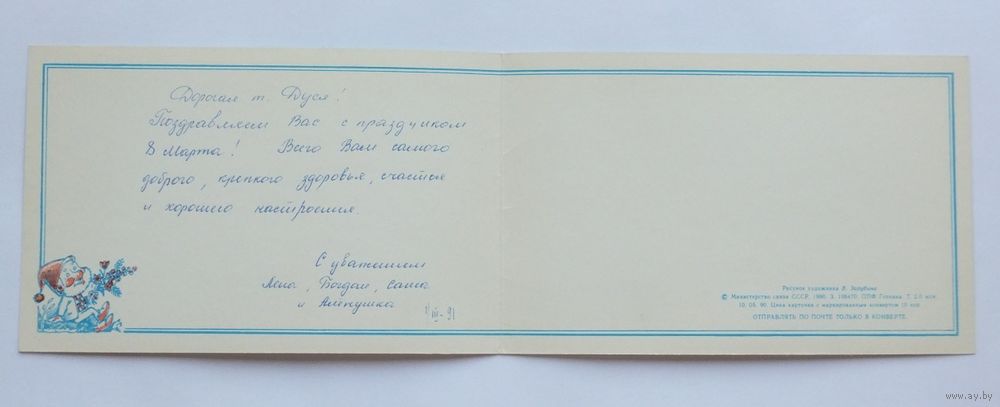 Дорогая т. Дуся!
Поздравляем Вас с праздником
8 Марта! Всего Вам самого
доброго, крепкого здоровья, счастья
и хорошего настроения.
С уважением
Лена, Богдан, Саша
и Алёнушка
III-91
Рисунок художника В. Зарубина
© Министерство связи СССР, 1990. З. 108470. ППФ Гознака. Т. 2,0 млн.
10. 05. 90. Цена карточки с маркированным конвертом 15 коп.
ОТПРАВЛЯТЬ ПО ПОЧТЕ ТОЛЬКО В КОНВЕРТЕ.
www.ay.by